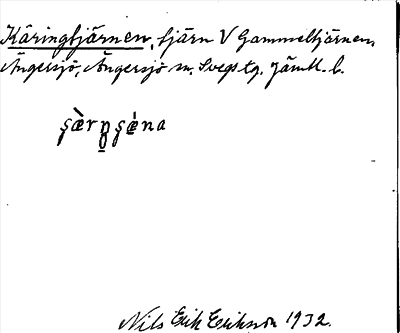 Käringtjärnen, tjärn V Gammeltjärnen,
Ängersjö, Ängersjö sn, Svegs tg. Jämtl. l.
Nils Erik Eriksson 1932.